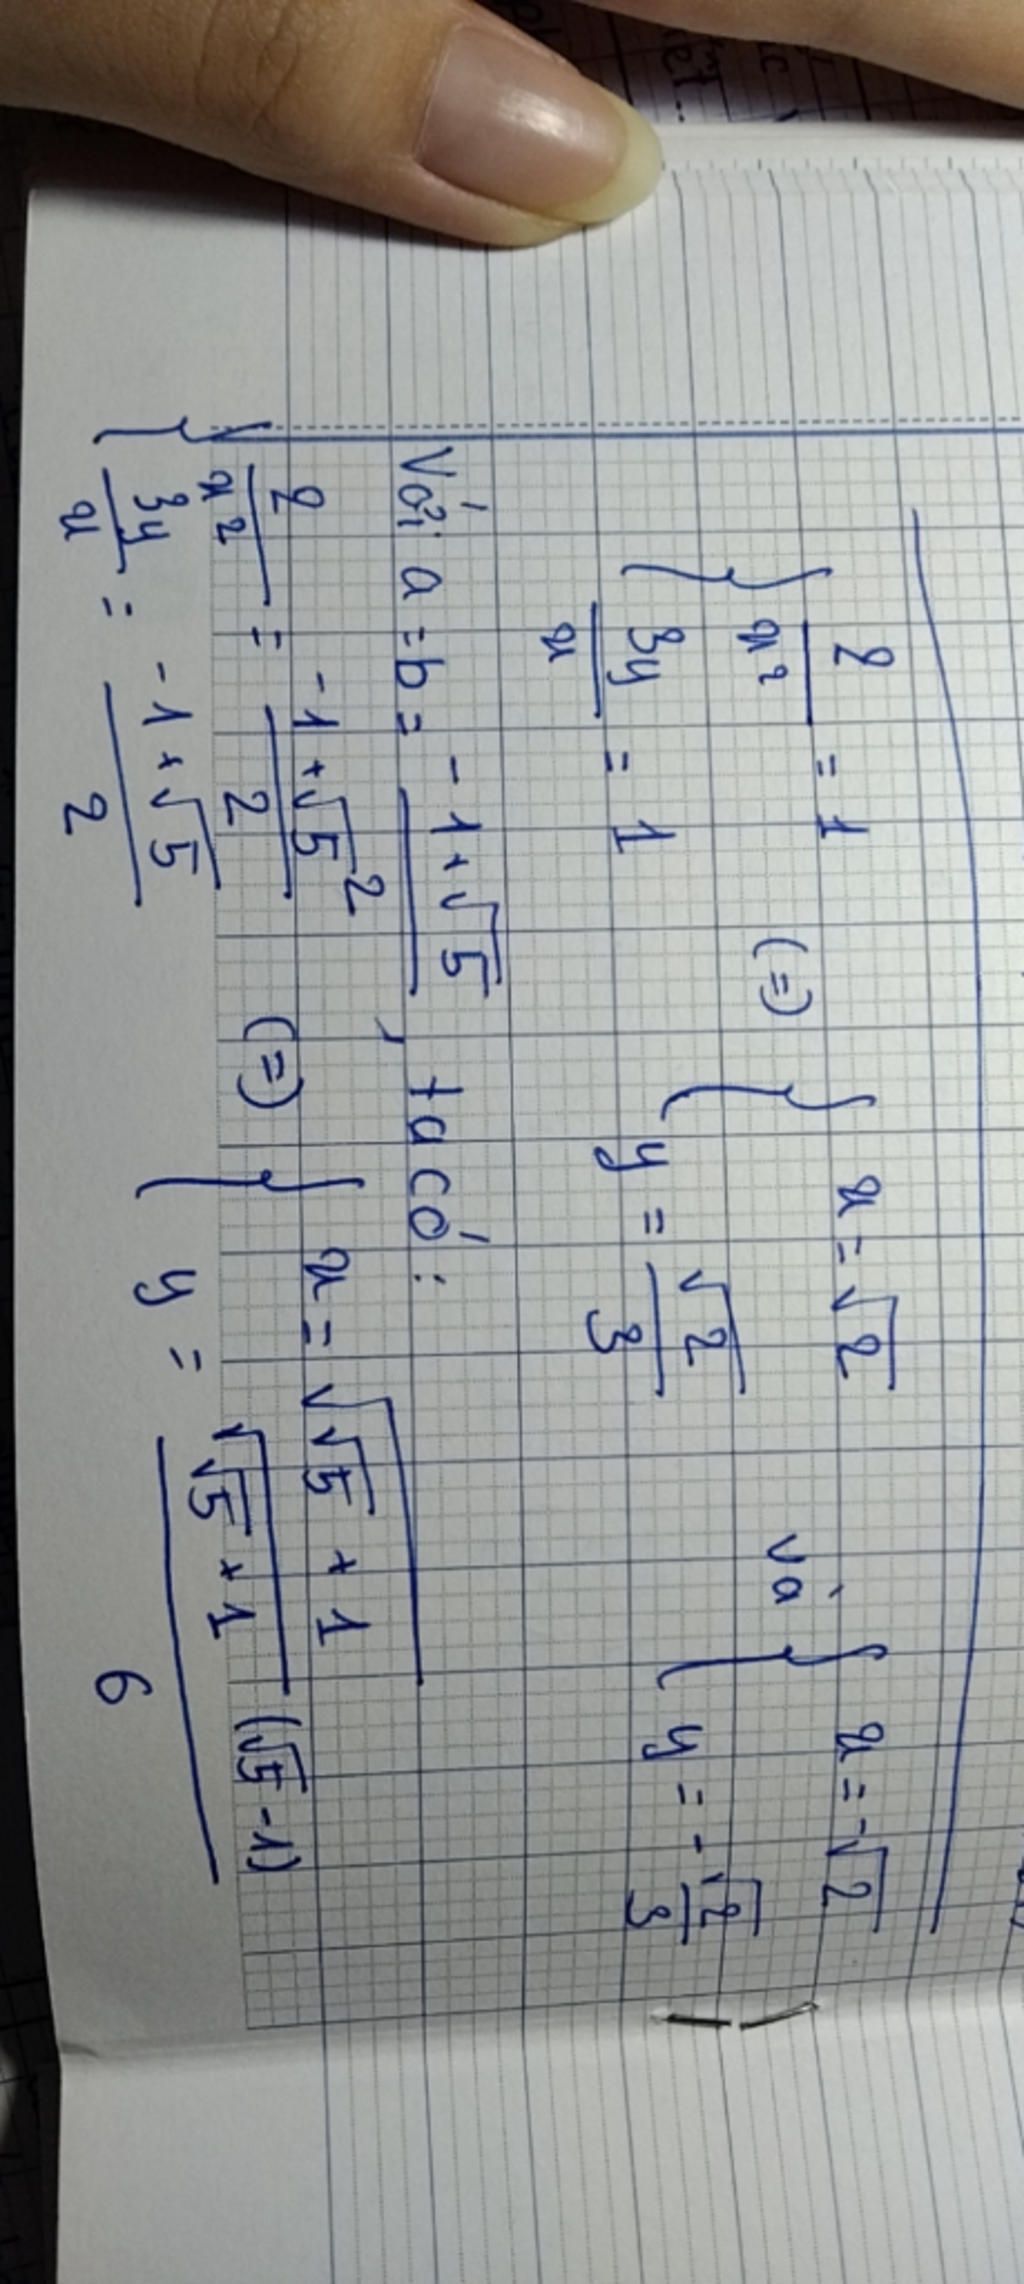 { 2/x² = 1
{ 3y/x = 1
(=)
{ x = √2
{ y = √2/3
và
{ x = -√2
{ y = -√2/3
Với a = b = -1+√5/2, ta có:
{ 2/x² = -1+√5/2
{ 3y/x = -1+√5/2
(=)
{ x = √(√5 + 1)
{ y = √(√5 + 1) (√5 - 1)/6